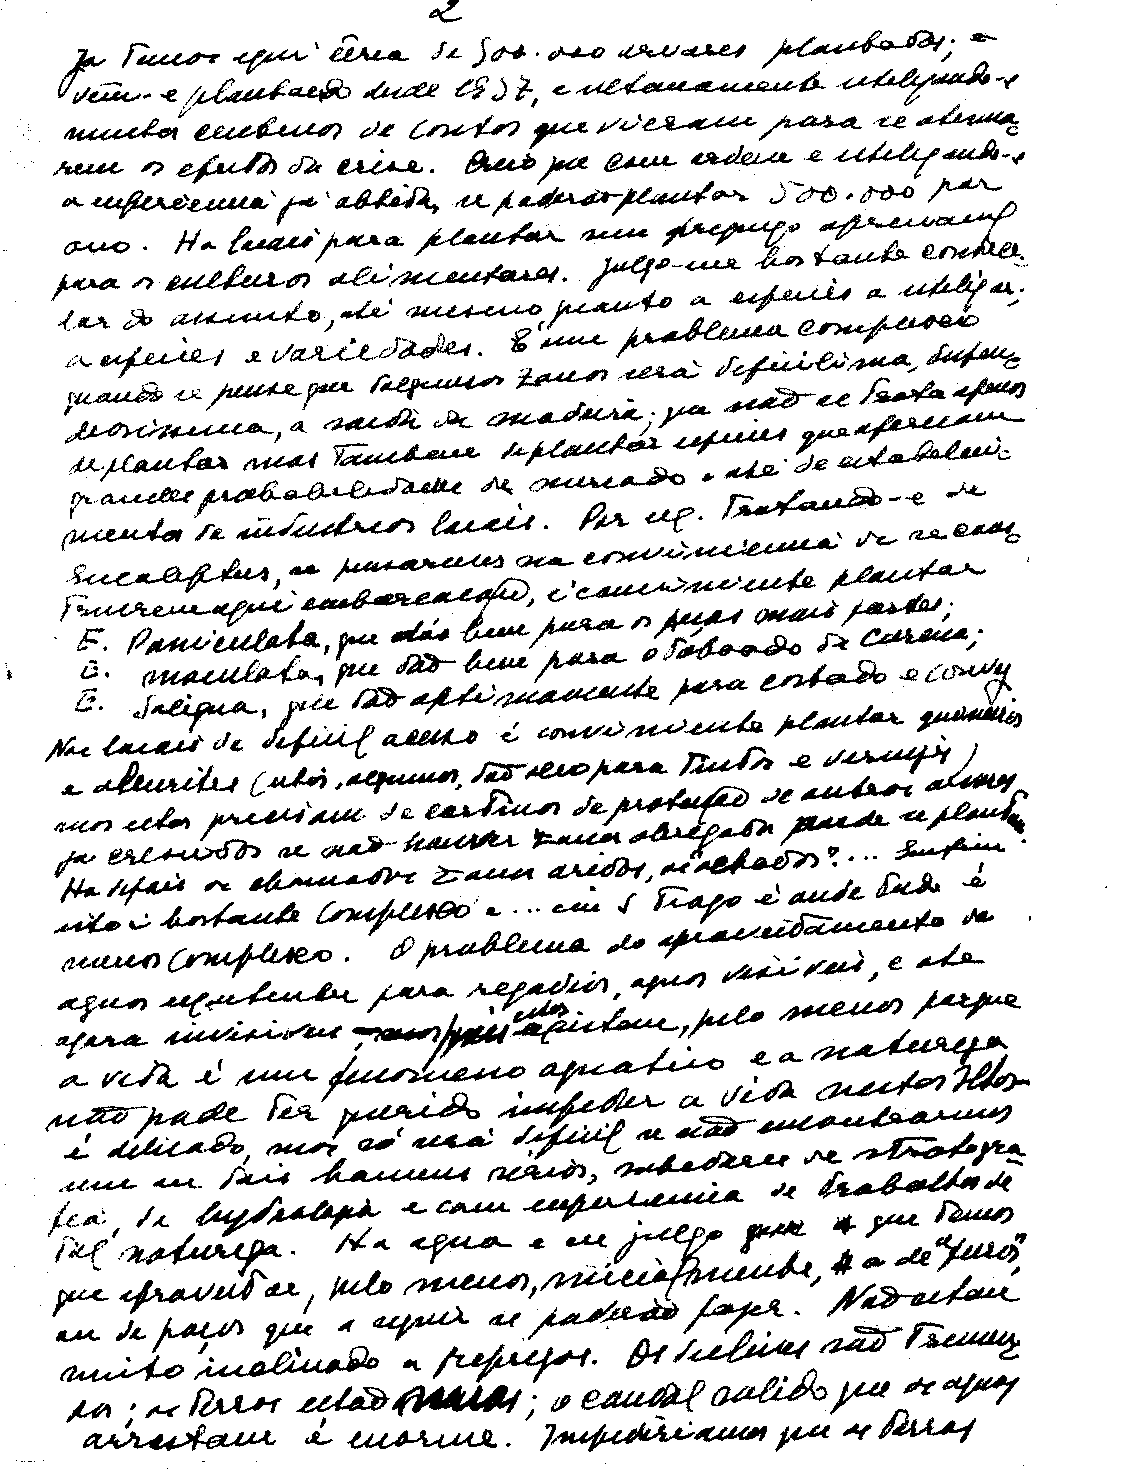 2
Ja temos aqui cêrca de 500.000 arvores plantadas; e
vem-se plantando desde 1937, e ultimamente utilizando-se
muitos centenos de contos que vieram para se atenua-
rem os efeitos da crise. Creio que com ordem e utilizando-se
a experiencia já obtida, se poderão plantar 500.000 por
ano. Ha locais para plantar sem prejuizo
para as culturas alimentares. Julgo-me bastante conhece-
dor do assunto, até mesmo quanto a especies a utilizar,
a especies e variedades. É um problema complexo
quando se pense que de algumas zonas será dificilima, dispen-
diosissima, a saida da madeira; que não se trata apenas
de plantar mas tambem de plantar especies que ofereçam
grandes probabilidades de mercado e até de estabeleci-
mento de industrias locais. Por ex. Tratando-se de
Eucaliptus, se pensarmos na conveniencia de se cons-
truirem aqui embarcações, é conveniente plantar
E. Paniculata, que dão bem para as peças mais fortes;
E. maculata, que dão bem para o taboado de carena;
E. Saligna, que dão optimamente para costado e convez
Nos locais de dificil acesso é conveniente plantar
e aleurites (estas, algumas, dão oleo para tintas e vernizes)
mas estas precisam de cortinas de protecção de outras arvores
ja crescidas se não houver zona abrigada onde se plantem.
Ha depois as chamadas zonas aridas, as "achadas"?... Emfim
isto é bastante complexo e ... em S. Tiago é onde tudo é
menos complexo. O problema do aproveitamento da
aguas existentes para regadios, aguas visiveis, e até
agora invisiveis, estas existem, pelo menos porque
a vida é um fenomeno aquatico e a natureza
não pode ter querido impedir a vida nestas Ilhas
é delicado, mas só será dificil se não encontrarmos
um ou dois homens sérios, sabedores de stratigra-
fia, de hydrologia e com experiencia de trabalhos de
tal natureza. Ha agua e eu julgo que temos
que aproveitar, pelo menos, inicialmente, a de "furos",
ou de poços que a seguir se poderão fazer. Não estou
muito inclinado a represas. Os declives são tremen-
dos; as terras estão nuas; o caudal solido que as aguas
arrastam é enorme. Impediriamos que as terras